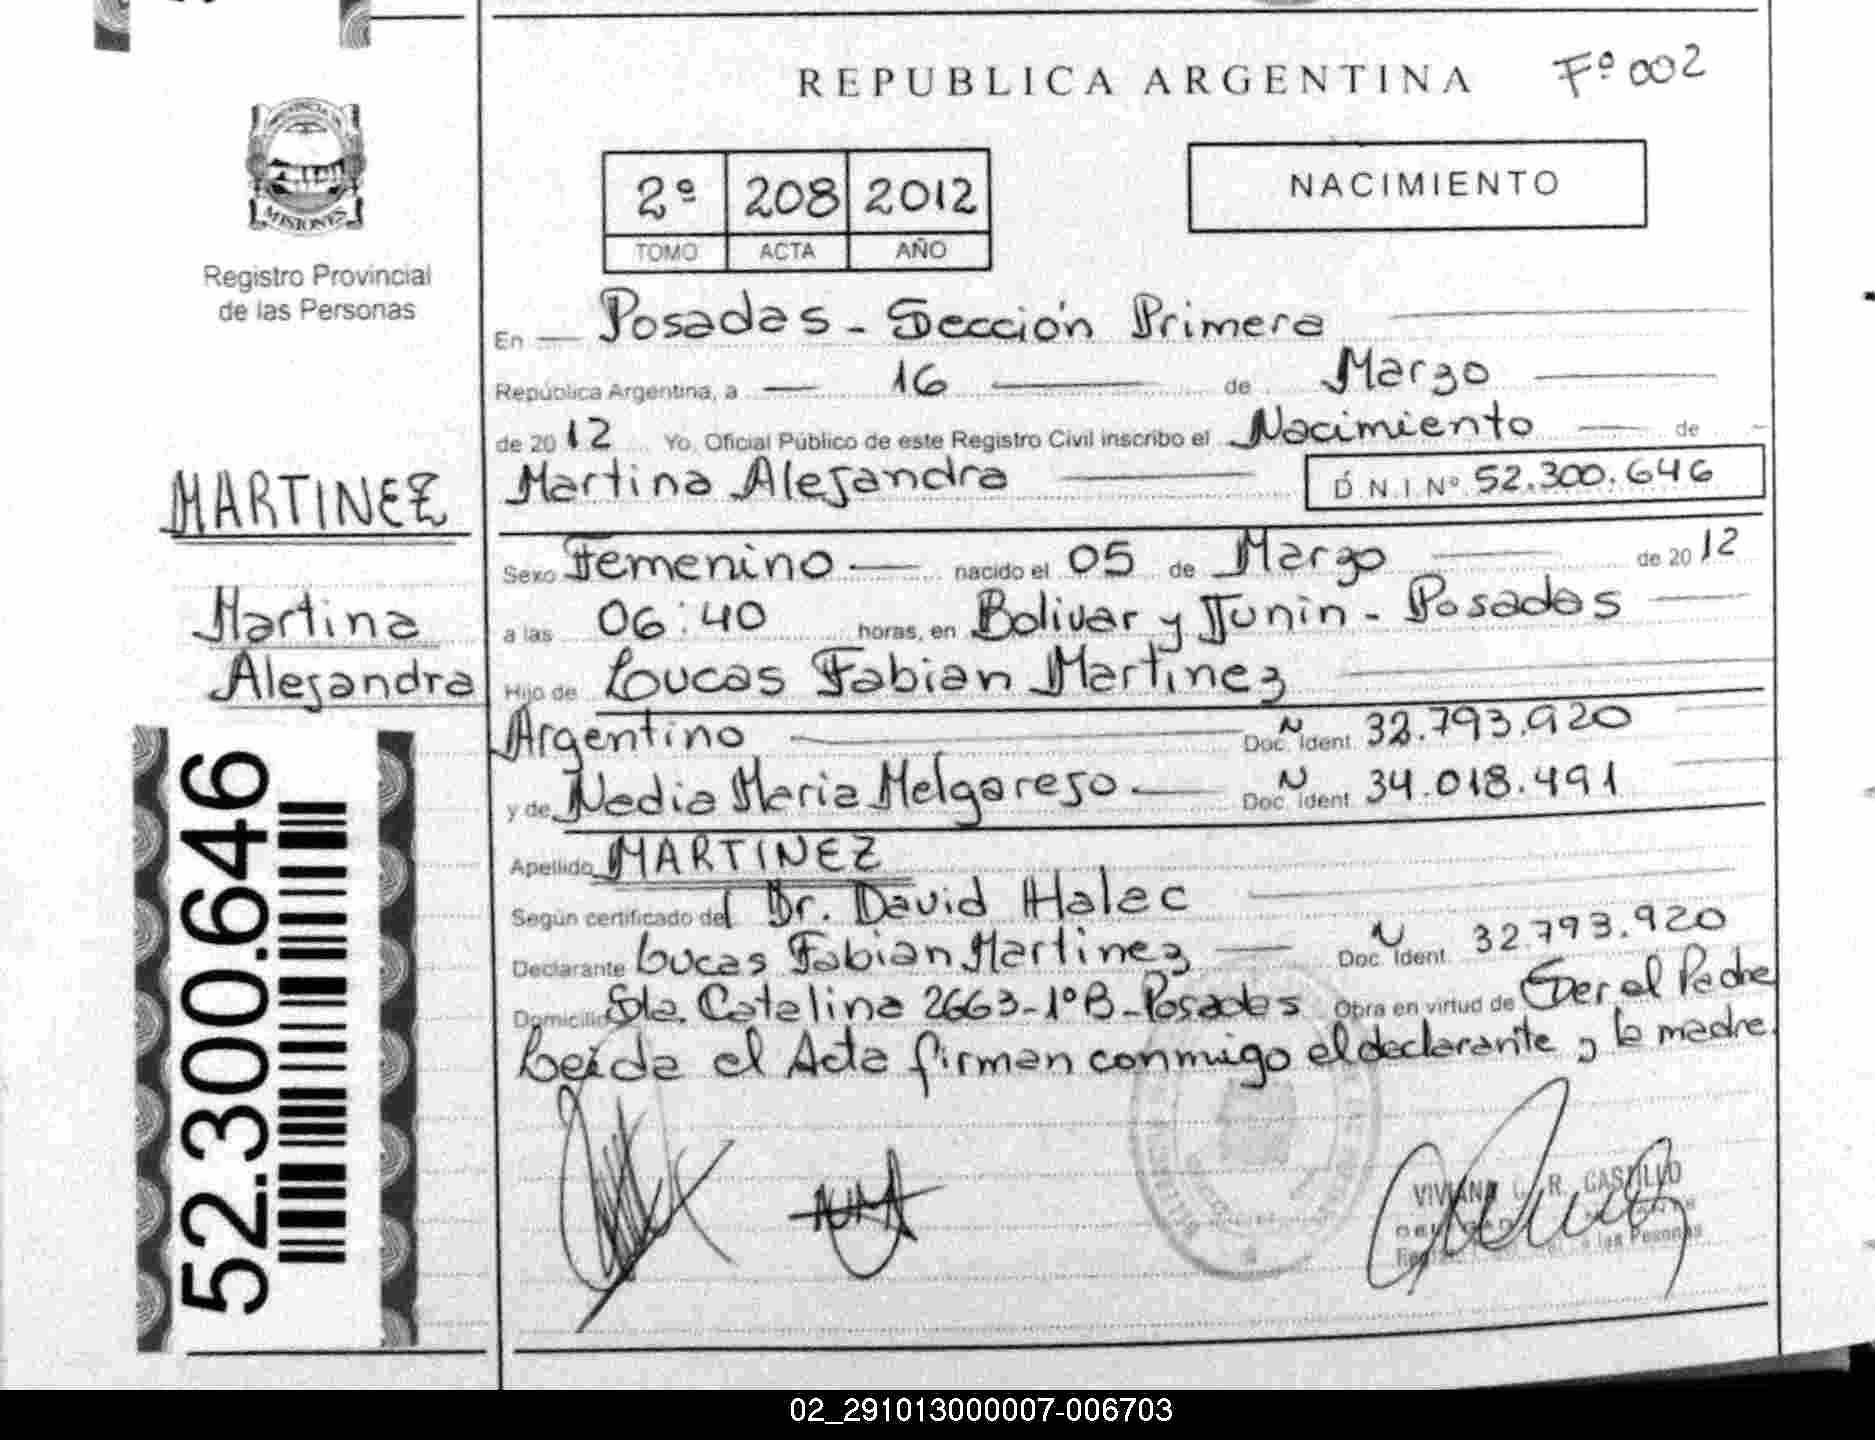 REPUBLICA ARGENTINA Fº 002
MISIONES
2º 208 2012
TOMO ACTA AÑO
NACIMIENTO
Registro Provincial
de las Personas
En Posadas - Sección Primera
República Argentina, a 16 de Marzo
de 20 12 Yo, Oficial Público de este Registro Civil inscribo el Nacimiento de
MARTINEZ
Martina Alejandra D.N.I. Nº 52.300.646
Sexo Femenino nacido el 05 de Marzo de 20 12
Martina
a las 06:40 horas, en Bolivar y Junin - Posadas
Alejandra
Hijo de Lucas Fabian Martinez
Argentino Doc. Ident. N 32.793.920
y de Nadia Maria Melgarejo Doc. Ident. N 34.018.491
52.300.646
Apellido MARTINEZ
Según certificado del Dr. David Halac
Declarante Lucas Fabian Martinez Doc. Ident. N 32.793.920
Domicilio Sta. Catalina 2663-1ºB-Posadas Obra en virtud de Ser el Padre
Leida el Acta firman conmigo el declarante y la madre.
VIVIANA R. CASTILLO
las Personas
02_291013000007-006703